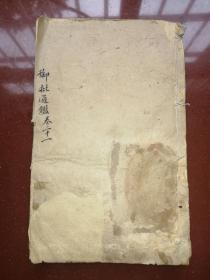 御批通鑑卷二十一